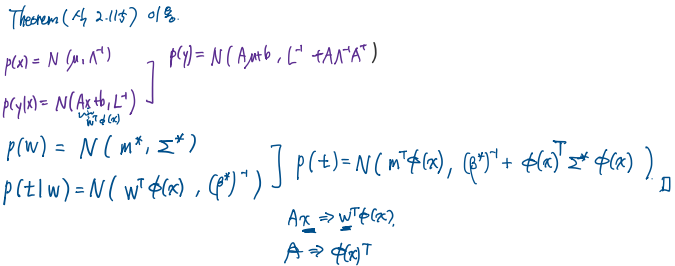 Theorem (식 2.115) 이용.
p(x) = N (μ, Λ⁻¹)
p(y|x) = N(Ax+b, L⁻¹)
wᵀφ(x)
p(y) = N( Aμ+b, L⁻¹ + AΛ⁻¹Aᵀ )
p(w) = N ( m*, Σ* )
p(t|w) = N( wᵀφ(x), (β*)⁻¹ )
p(t) = N( mᵀφ(x), (β*)⁻¹ + φ(x)ᵀ Σ* φ(x) ) . □
Ax ⇒ wᵀφ(x).
A ⇒ φ(x)ᵀ